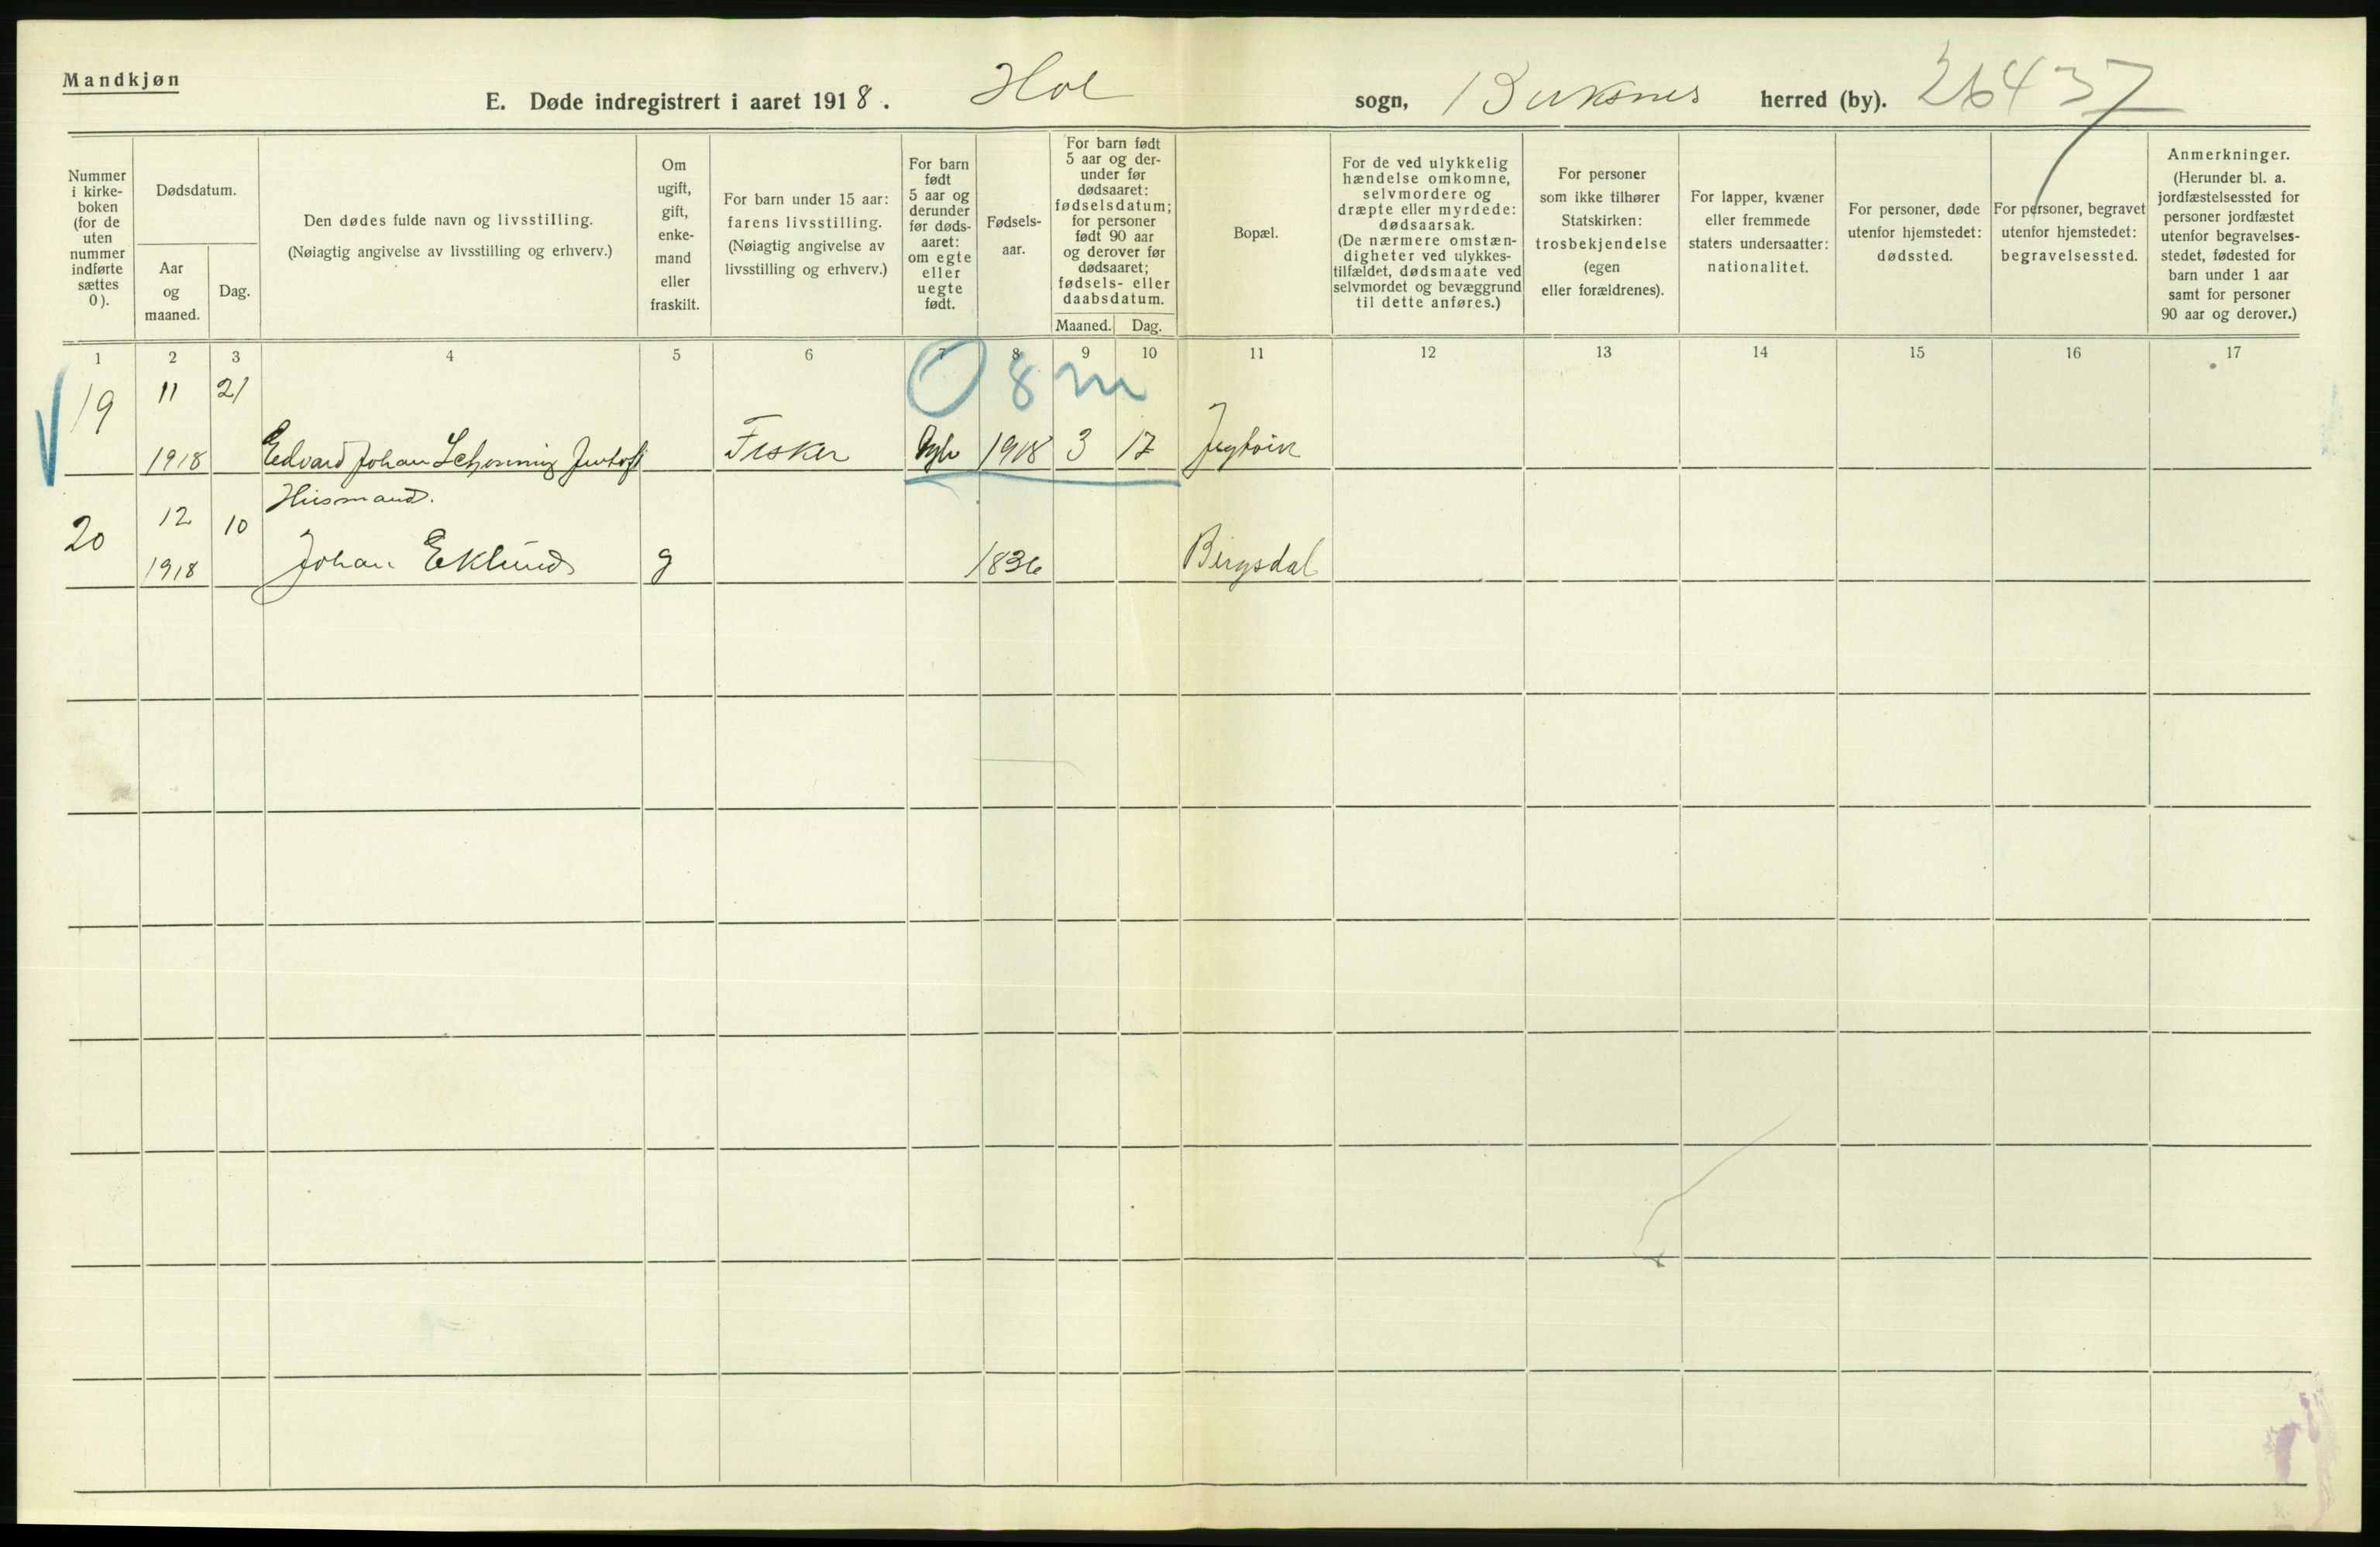 Mandkjøn
E. Døde indregistrert i aaret 1918. Hol sogn, Buksnes herred (by). 26437
Nummer i kirke-boken (for de uten nummer indførte sættes 0).
Dødsdatum.
Aar og maaned.
Dag.
Den dødes fulde navn og livsstilling.
(Nøiagtig angivelse av livsstilling og erhverv.)
Om ugift, gift, enke-mand eller fraskilt.
For barn under 15 aar: farens livsstilling. (Nøiagtig angivelse av livsstilling og erhverv.)
For barn født 5 aar og derunder før døds-aaret: om egte eller uegte født.
Fødsels-aar.
For barn født 5 aar og der-under før dødsaaret: fødselsdatum; for personer født 90 aar og derover før dødsaaret; fødsels- eller daabsdatum.
Maaned. Dag.
Bopæl.
For de ved ulykkelig hændelse omkomne, selvmordere og dræpte eller myrdede: dødsaarsak. (De nærmere omstæn-digheter ved ulykkes-tilfældet, dødsmaate ved selvmordet og bevæggrund til dette anføres.)
For personer som ikke tilhører Statskirken: trosbekjendelse (egen eller forældrenes).
For lapper, kvæner eller fremmede staters undersaatter: nationalitet.
For personer, døde utenfor hjemstedet: dødssted.
For personer, begravet utenfor hjemstedet: begravelsessted.
Anmerkninger. (Herunder bl. a. jordfæstelsessted for personer jordfæstet utenfor begravelses-stedet, fødested for barn under 1 aar samt for personer 90 aar og derover.)
1 2 3 4 5 6 7 8 9 10 11 12 13 14 15 16 17
19 11 21 0 8 m
1918 Edvard Johan Schønning Fisker 1918 3 17
Husmand.
20 12 10
1918 Johan Eklund g 1836 Bergsdal